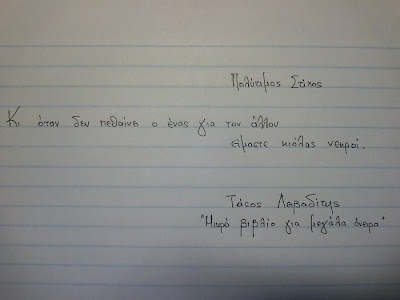 Πολύτιμος Στίχος
Κι όταν δεν πεθαίνει ο ένας για τον άλλον
είμαστε κιόλας νεκροί.
Τάσος Λειβαδίτης
"Μικρό βιβλίο για μεγάλα όνειρα"